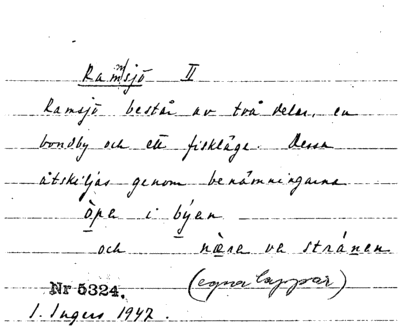 Ramsjö II
Ramsjö består av två delar, en
bondby och ett fiskläge. Dessa
åtskiljas genom benämningarna
òpa i býan
och næra va stránen
Nr 5324. (egna lappar)
1. Ingers 1947.